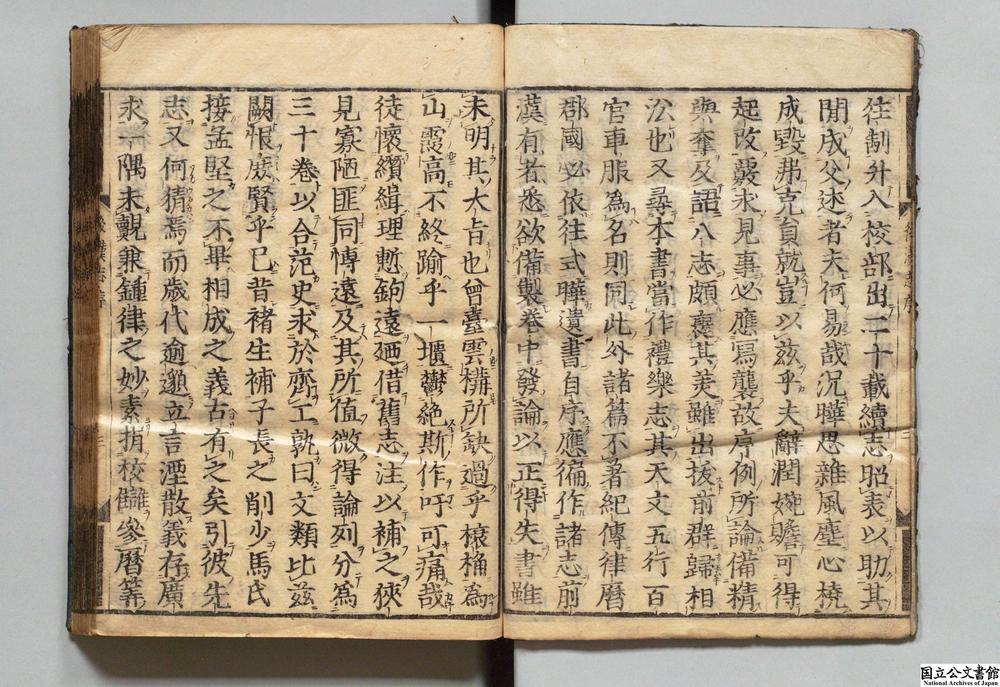 往制升入校部出二十載續志昭表以助其
閒成父述者夫何易哉況曄思雜風塵心橈
成毀弗克員就豈以茲乎夫辭潤婉贍可得
起改覈求見事必應寫襲故序例所論備精
與奪及語八志頗褒其美雖出拔前群歸相
㳂也又尋本書當作禮樂志其天文五行百
官車服為名則同此外諸篇不著紀傳律曆
郡國必依往式曄遺書自序應徧作諸志前
漢有者悉欲備製卷中發論以正得失書雖
未明其大旨也曾臺雲構所缺過乎榱桷為
山霞高不終踰乎一壥鬱絕斯作吁可痛哉
徒懷纘緝理慙鉤遠廼借舊志注以補之狹
見寡陋匪同博遠及其所值微得論列分為
三十卷以合范史求於齊工孰曰文類比茲
闕恨庶賢乎已昔褚生補子長之削少馬氏
接孟堅之不畢相成之義古有之矣引彼先
志又何猜焉而歲代逾邈立言湮散義存廣
求一隅未覿兼鍾律之妙素揖校讎參曆筭
後漢志序
国立公文書館
National Archives of Japan